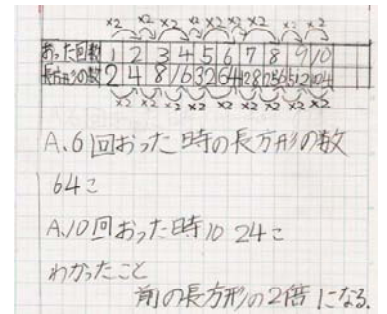 ×2 ×2 ×2 ×2 ×2 ×2 ×2 ×2 ×2
おった回数 1 2 3 4 5 6 7 8 9 10
長方形の数 2 4 8 16 32 64 128 256 512 1024
×2 ×2 ×2 ×2 ×2 ×2 ×2 ×2 ×2
A、6回おった時の長方形の数
64こ
A、10回おった時1024こ
わかったこと
前の長方形の2倍になる.